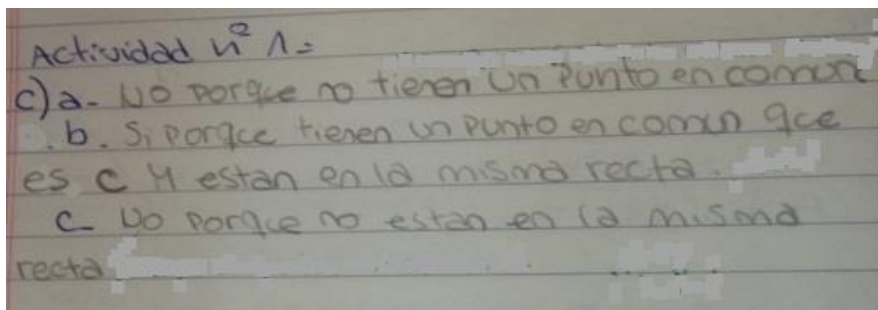 Actividad nº 1=
c) a- No porque no tienen un punto en comun
. b. Si porqce tienen un punto en comun qce
es c y estan en la misma recta.
c- No porque no estan en la misma
recta